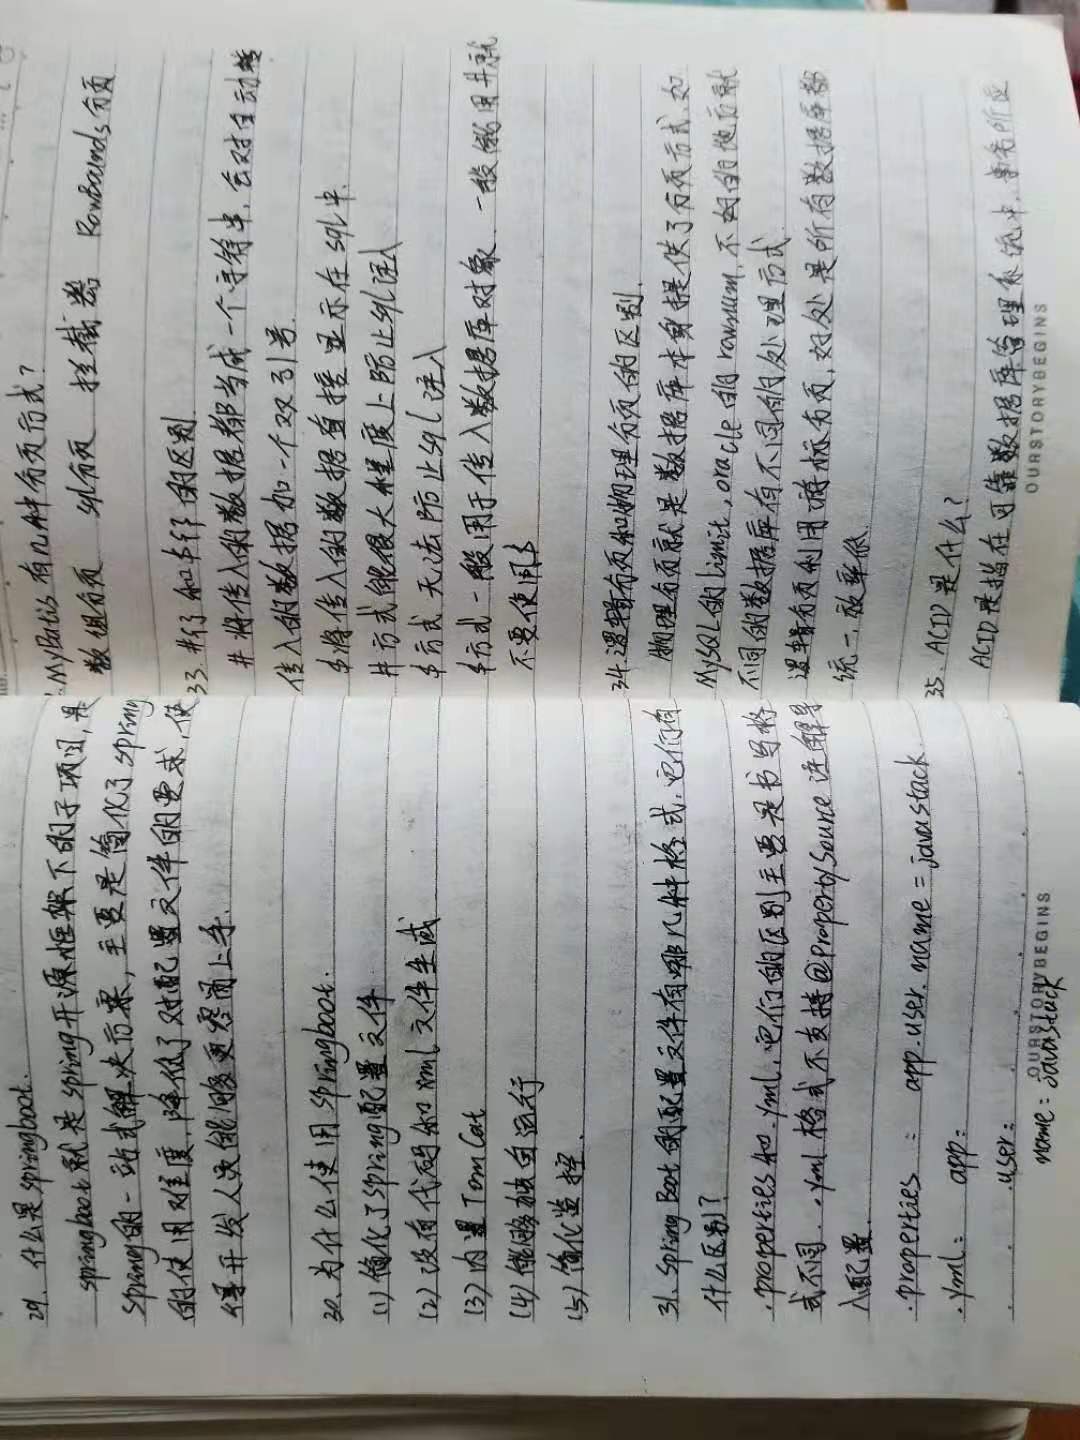 29. 什么是springboot.
springboot就是spring开源框架下的子项目,是
spring的一站式解决方案,主要是简化了spring
的使用难度,降低了对配置文件的要求,使
得开发人员能够更容易上手.
30. 为什么使用springboot.
(1) 简化了spring配置文件
(2) 没有代码和xml文件生成
(3) 内置TomCat
(4) 能够独自运行
(5) 简化监控.
31. Spring Boot的配置文件有哪几种格式,它们有
什么区别?
.properties和.yml,它们的区别主要是书写格
式不同. .yml格式不支持@PropertySource注解导
入配置.
.properties : app.user.name = javastack.
.yml: app:
user:
name: javastack
OURSTORYBEGINS
MyBatis有几种分页方式?
数组分页 sql分页 拦截器 RowBounds分页
33. #{}和${}的区别
#将传入的数据都当成一个字符串,会对自动
传入的数据加一个双引号.
$将传入的数据直接显示在sql中.
#方式能很大程度上防止sql注入
$方式无法防止sql注入
$方式一般用于传入数据库对象,一般能用#就
不要使用$
34. 逻辑分页和物理分页的区别.
物理分页就是数据库本身提供了分页方式,如
MySQL的limit, oracle的rownum,不好的地方就
不同的数据库有不同的处理方式
逻辑分页利用游标分页,好处是所有数据库都
统一,效率低.
35. ACID是什么?
ACID是指在可靠数据库管理系统中,事务所应
OURSTORYBEGINS